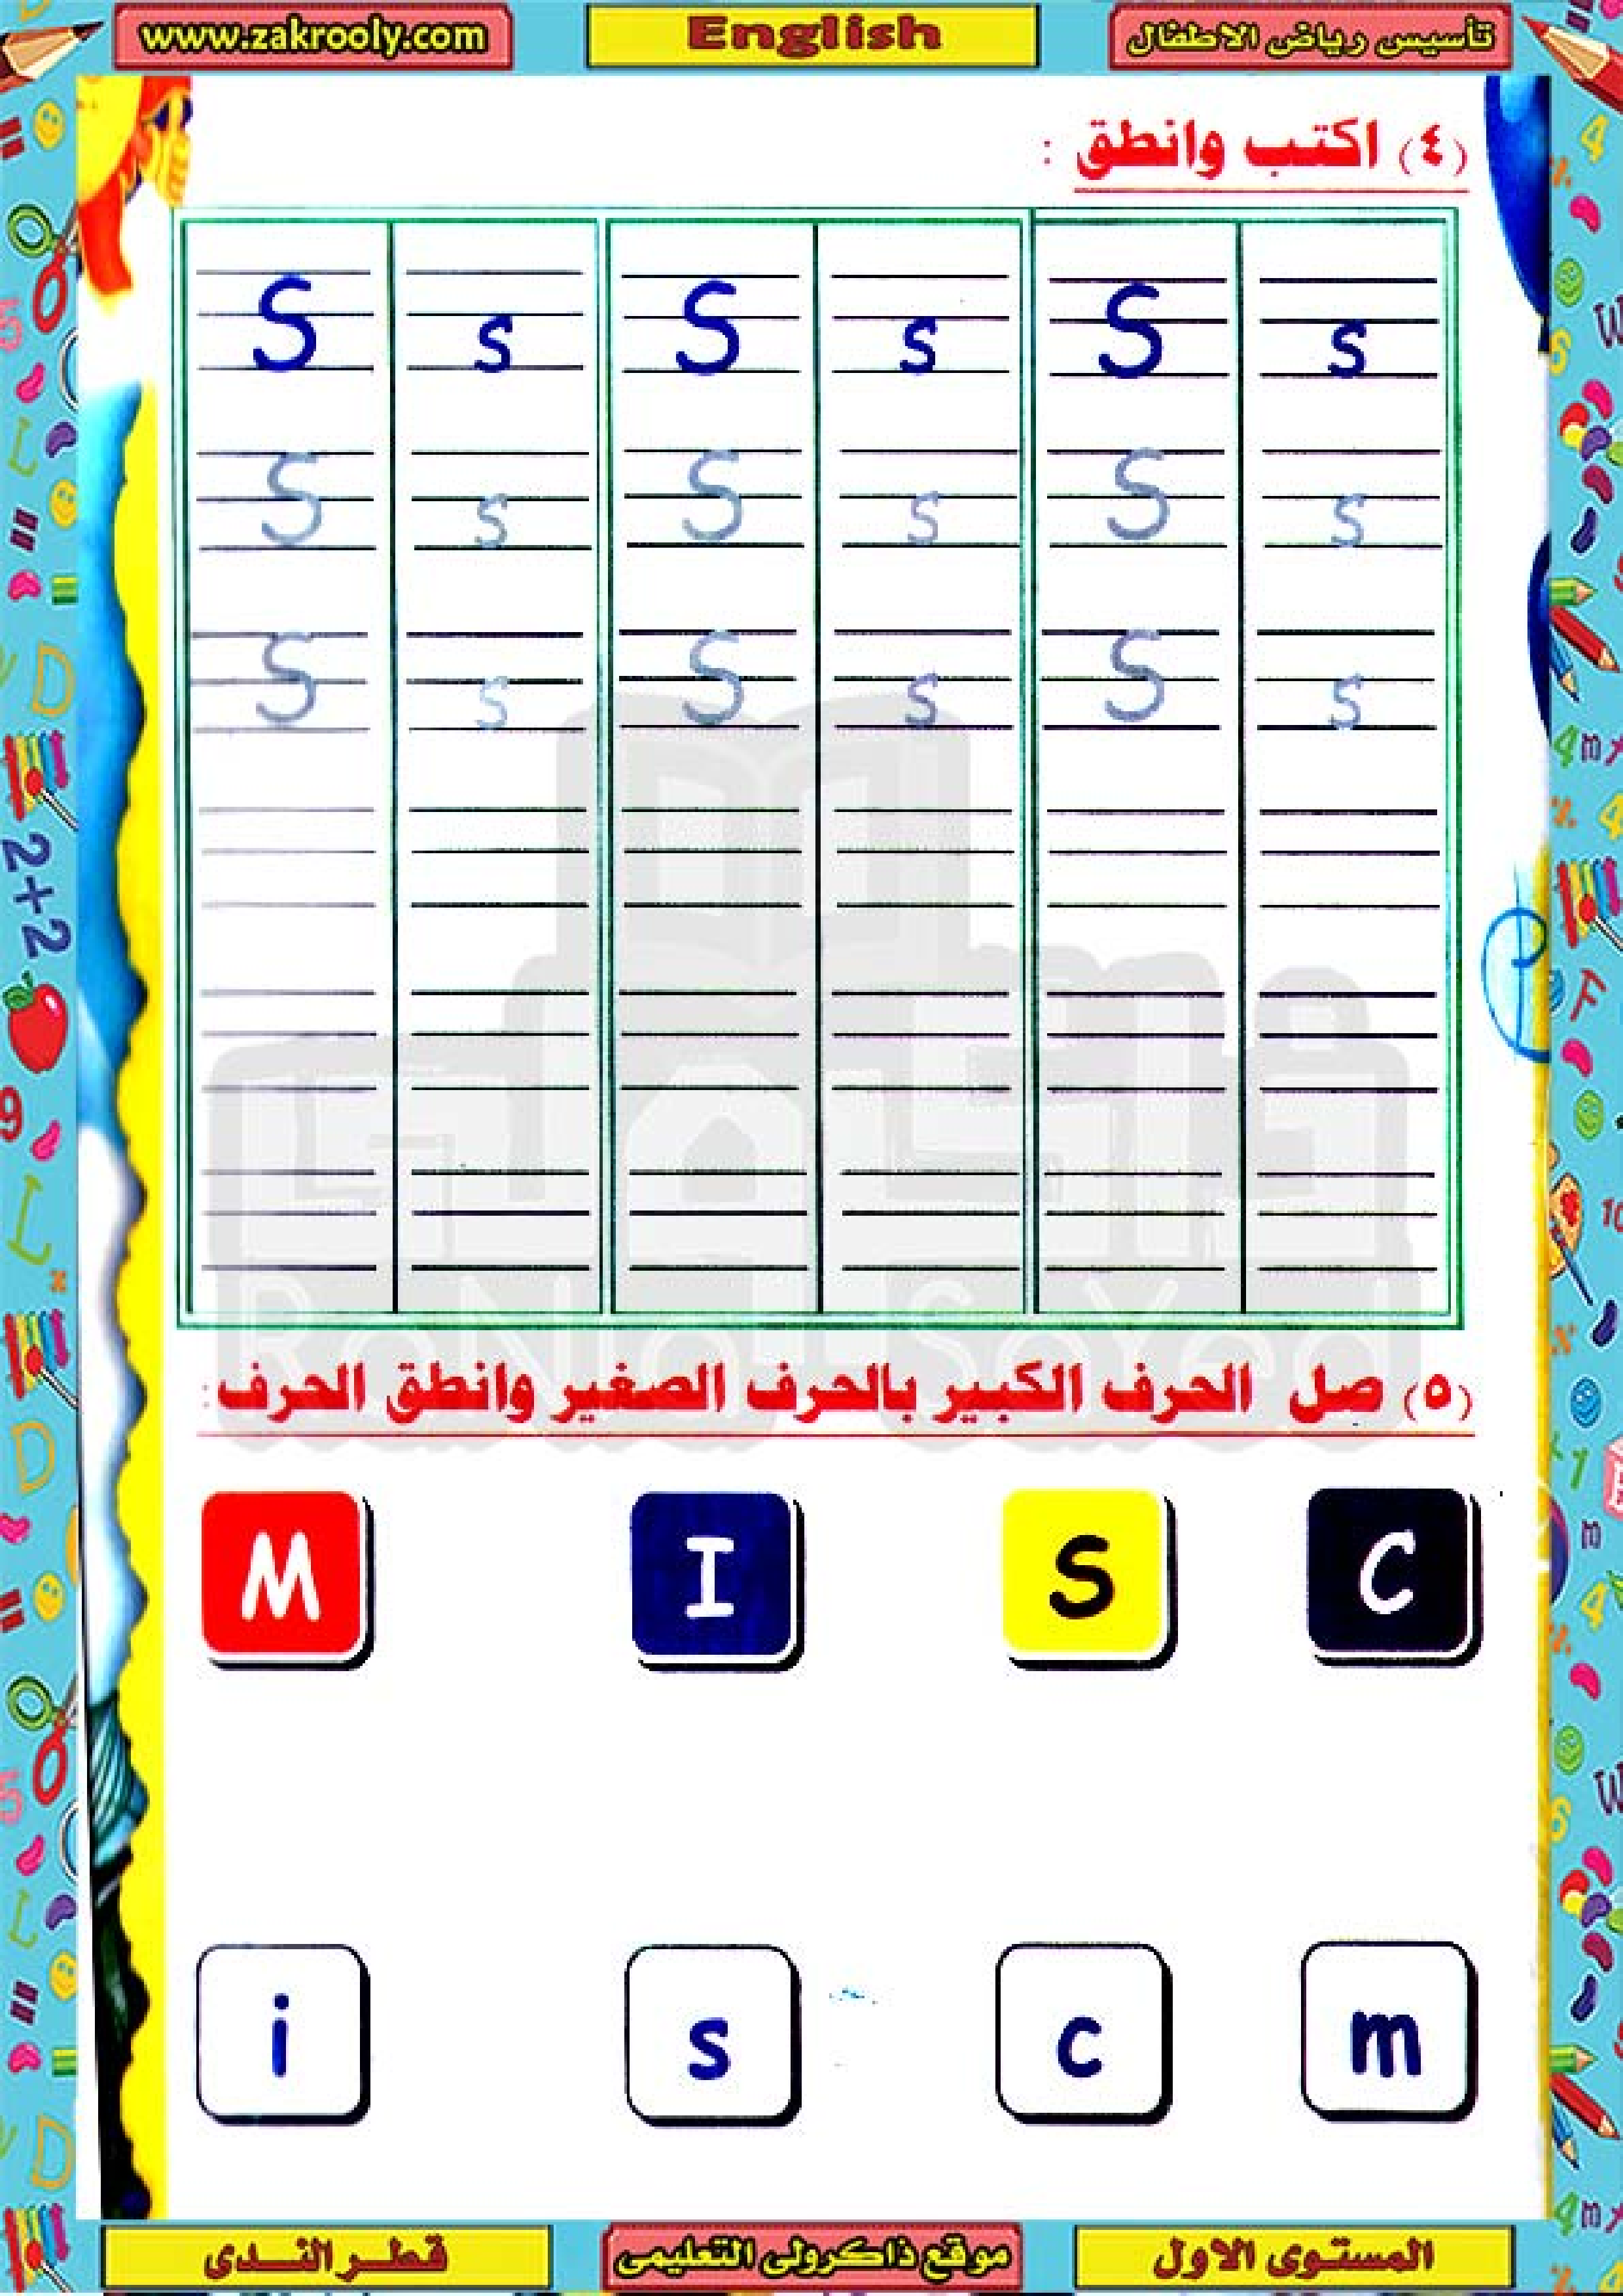 www.zakrooly.com English تأسيس رياض الاطفال
(٤) اكتب وانطق :
S s S s S s
S s S s S s
S s S s S s
RaNia SaYed
(٥) صل الحرف الكبير بالحرف الصغير وانطق الحرف:
M I S C
i s c m
قطر الندى موقع ذاكرولى التعليمى المستوى الاول